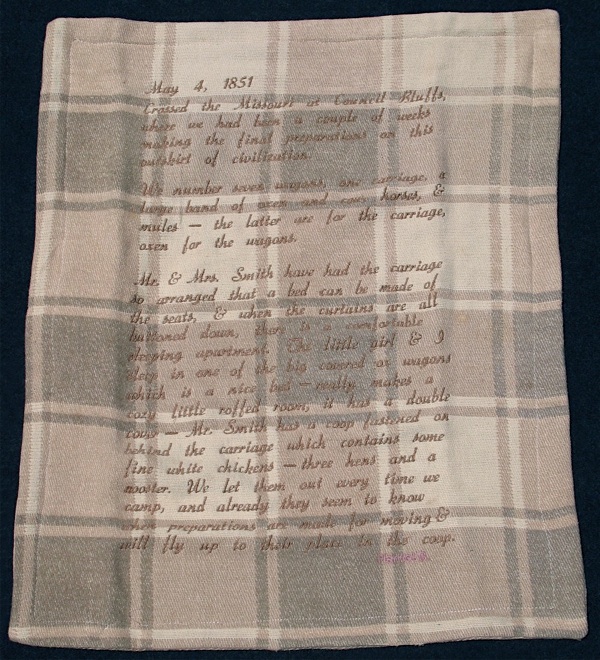 May 4, 1851
Crossed the Missouri at Council Bluffs,
where we had been a couple of weeks
making the final preparations on this
outskirt of civilization.
We number seven wagons, one carriage, a
large band of oxen and cows, horses, &
mules — the latter are for the carriage,
oxen for the wagons.
Mr. & Mrs. Smith have had the carriage
so arranged that a bed can be made of
the seats, & when the curtains are all
buttoned down, there is a comfortable
sleeping apartment. The little girl & I
sleep in one of the big covered ox wagons
which is a nice bed — really makes a
cozy little roffed room, it has a double
cover — Mr. Smith has a coop fastened on
behind the carriage which contains some
fine white chickens — three hens and a
rooster. We let them out every time we
camp, and already they seem to know
when preparations are made for moving &
will fly up to their place in the coop.